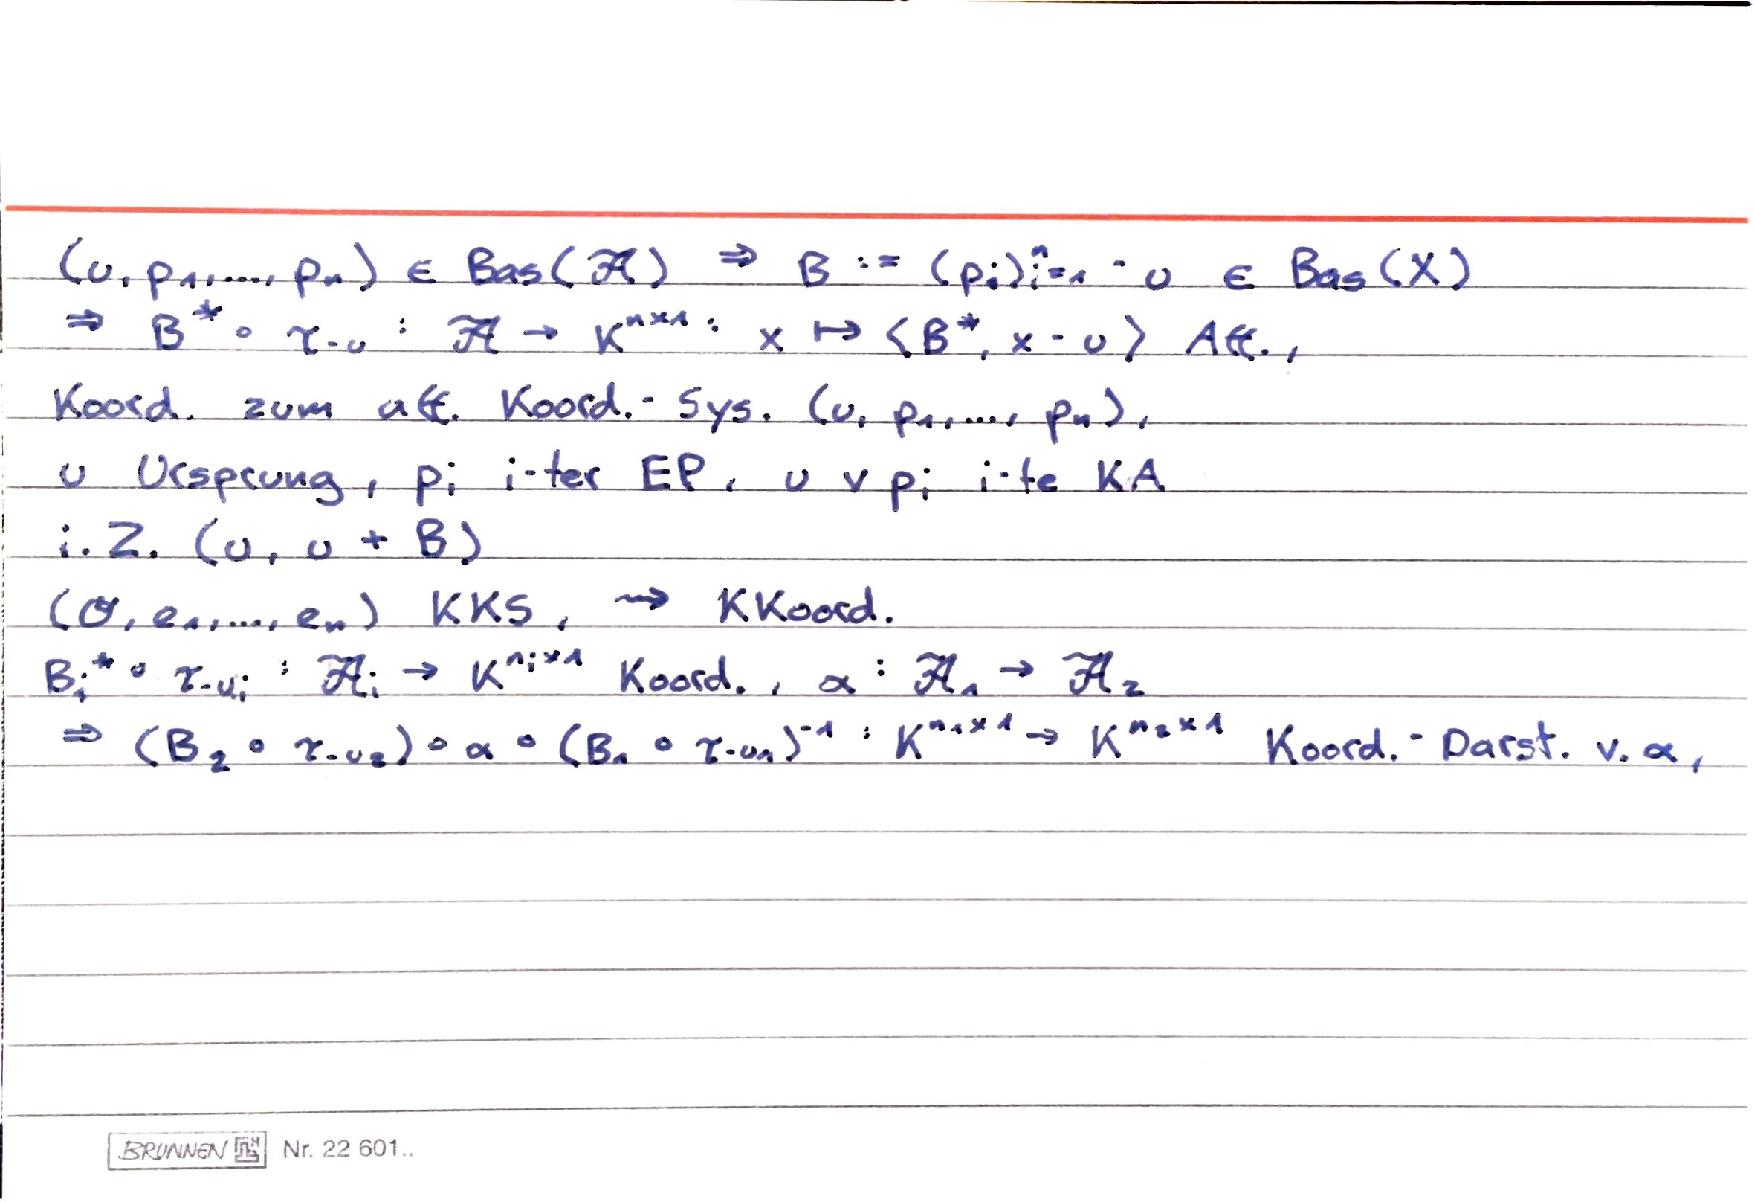 (u, p₁, ..., pₙ) ∈ Bas(𝒜) ⇒ B := (pᵢ)ⁿᵢ₌₁ - u ∈ Bas(X)
⇒ B* ∘ τ₋ᵤ : 𝒜 → Kⁿˣ¹ : x ↦ ⟨B*, x - u⟩ Aff.,
Koord. zum aff. Koord.-Sys. (u, p₁, ..., pₙ),
u Ursprung, pᵢ i-ter EP, u ∨ pᵢ i-te KA
i.Z. (u, u + B)
(O, e₁, ..., eₙ) KKS, ⇝ KKoord.
Bᵢ* ∘ τ_{-uᵢ} : 𝒜ᵢ → K^{nᵢ×1} Koord., α : 𝒜₁ → 𝒜₂
⇒ (B₂ ∘ τ_{-u₂}) ∘ α ∘ (B₁ ∘ τ_{-u₁})⁻¹ : K^{n₁×1} → K^{n₂×1} Koord.-Darst. v. α,
BRUNNEN Nr. 22 601..